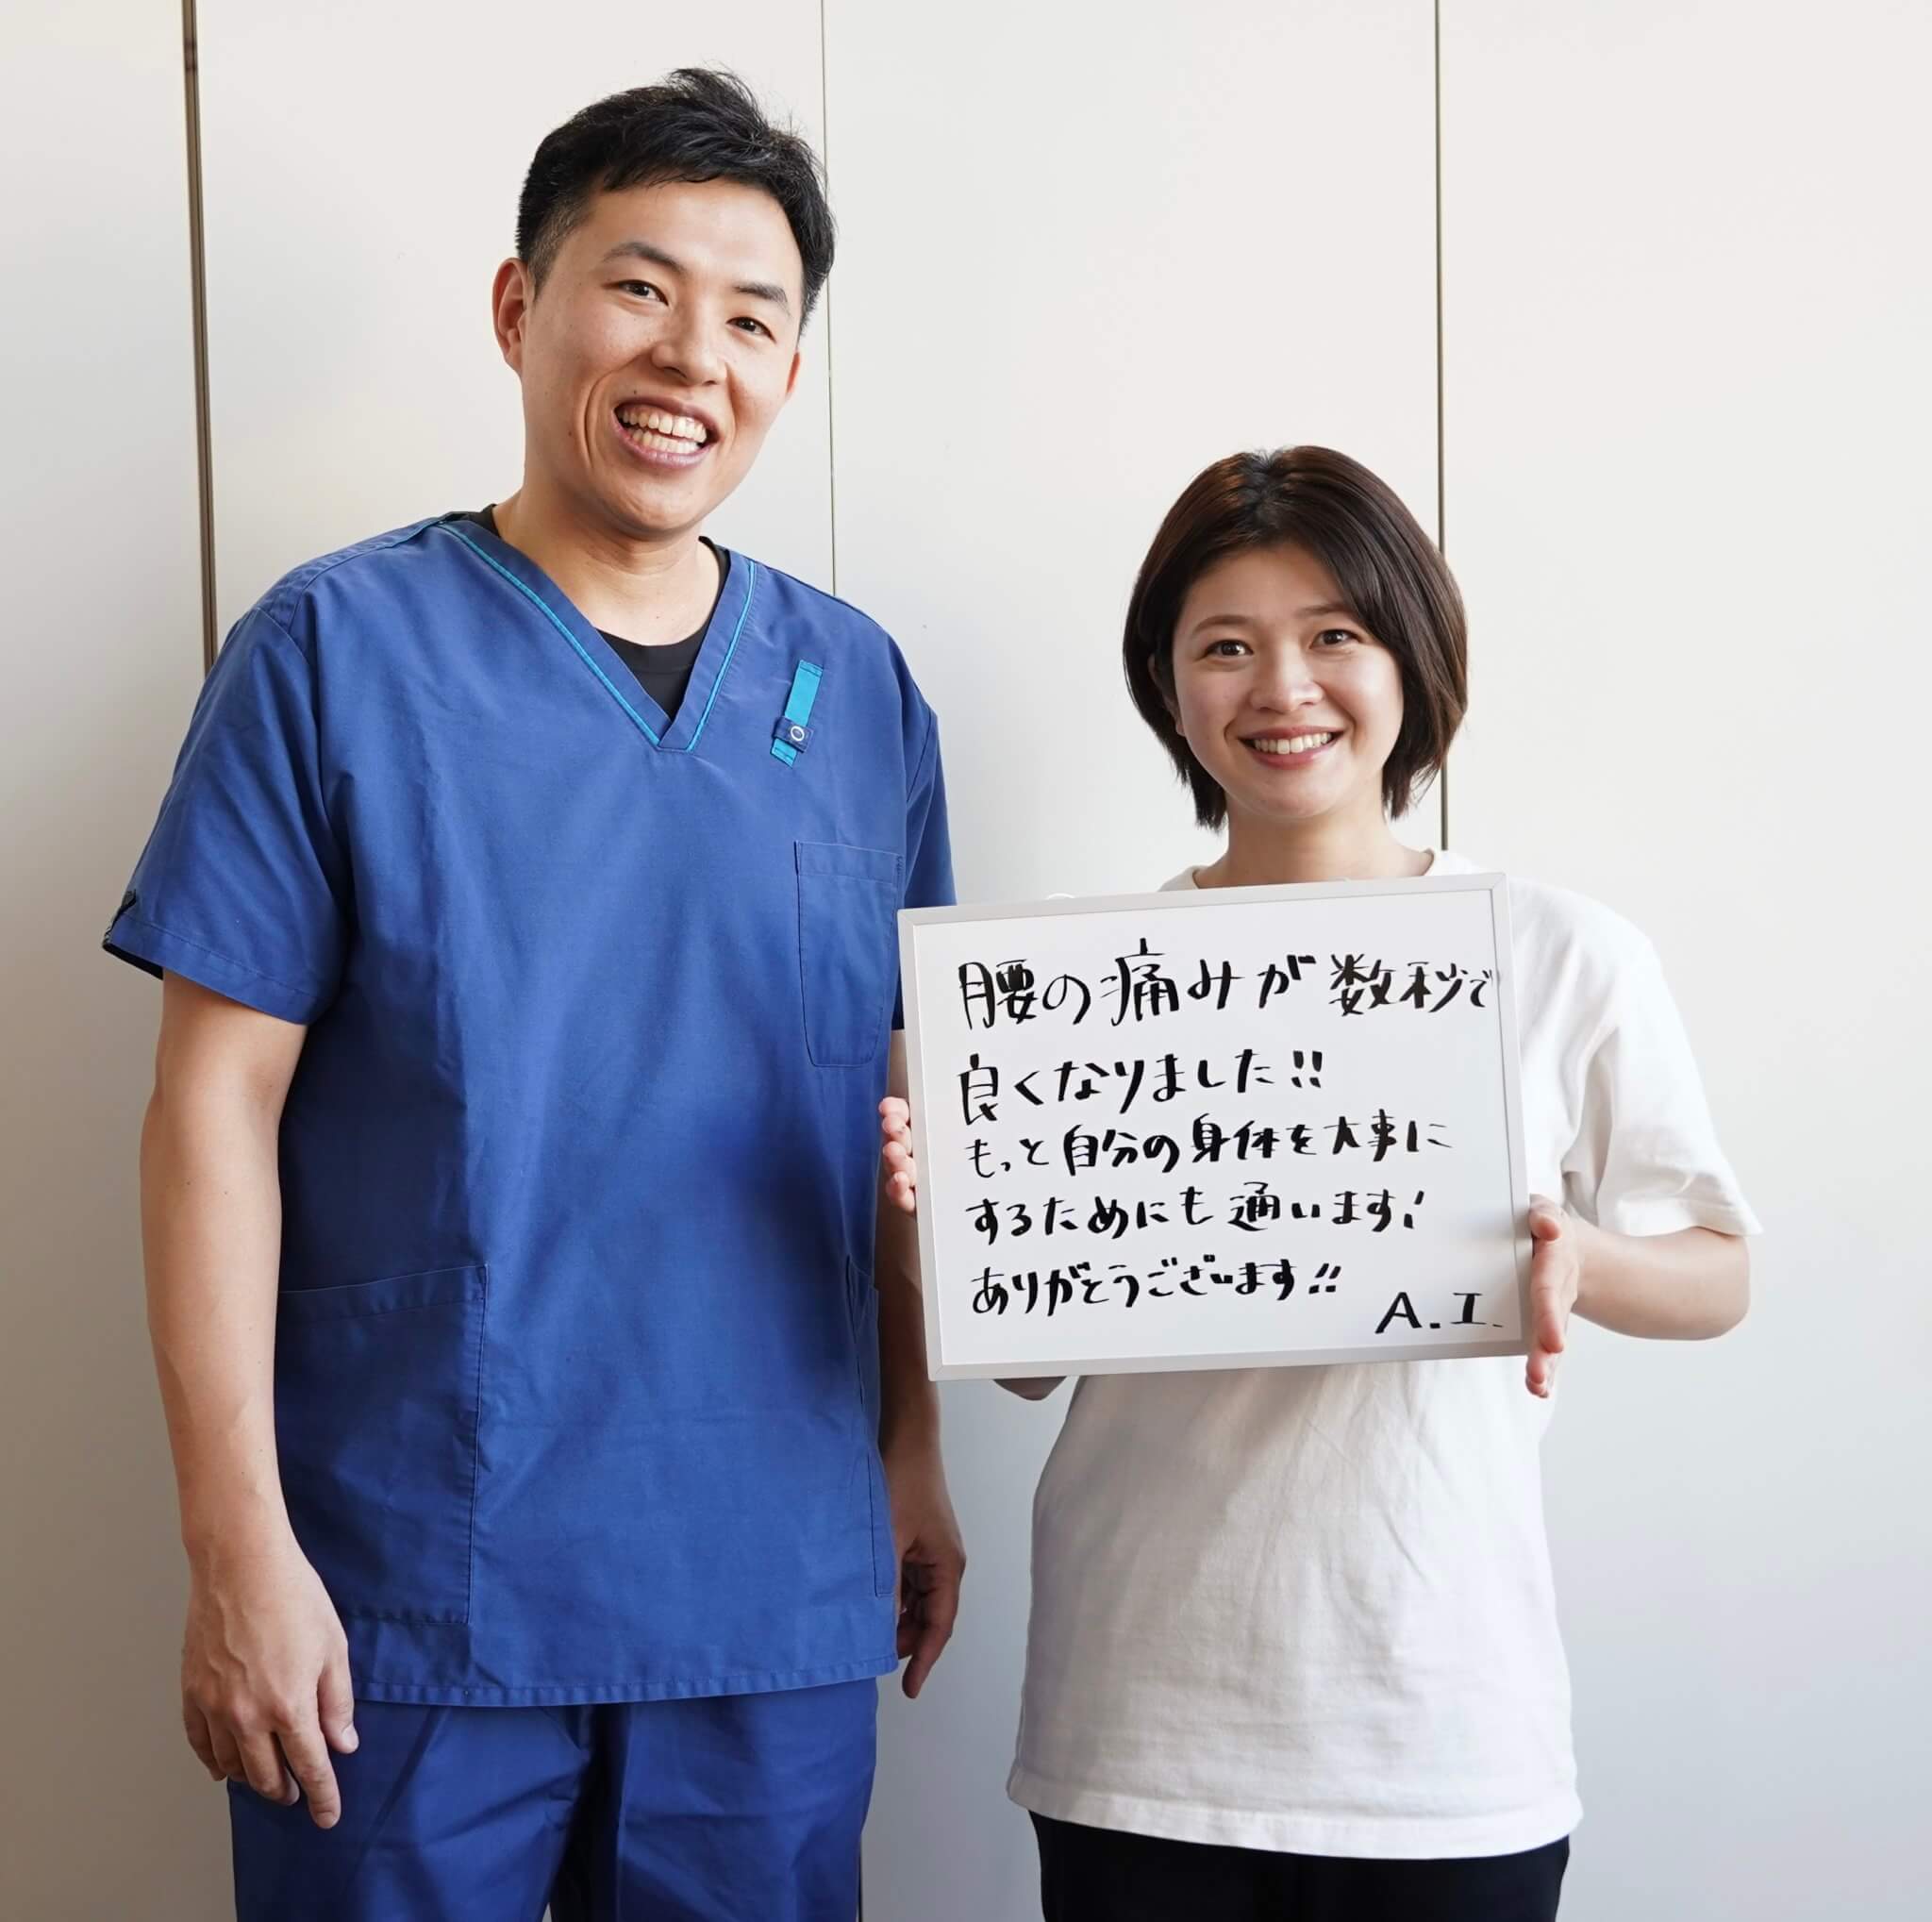 腰の痛みが数秒で
良くなりました!!
もっと自分の身体を大事に
するためにも通います!
ありがとうございます!!
A.I.